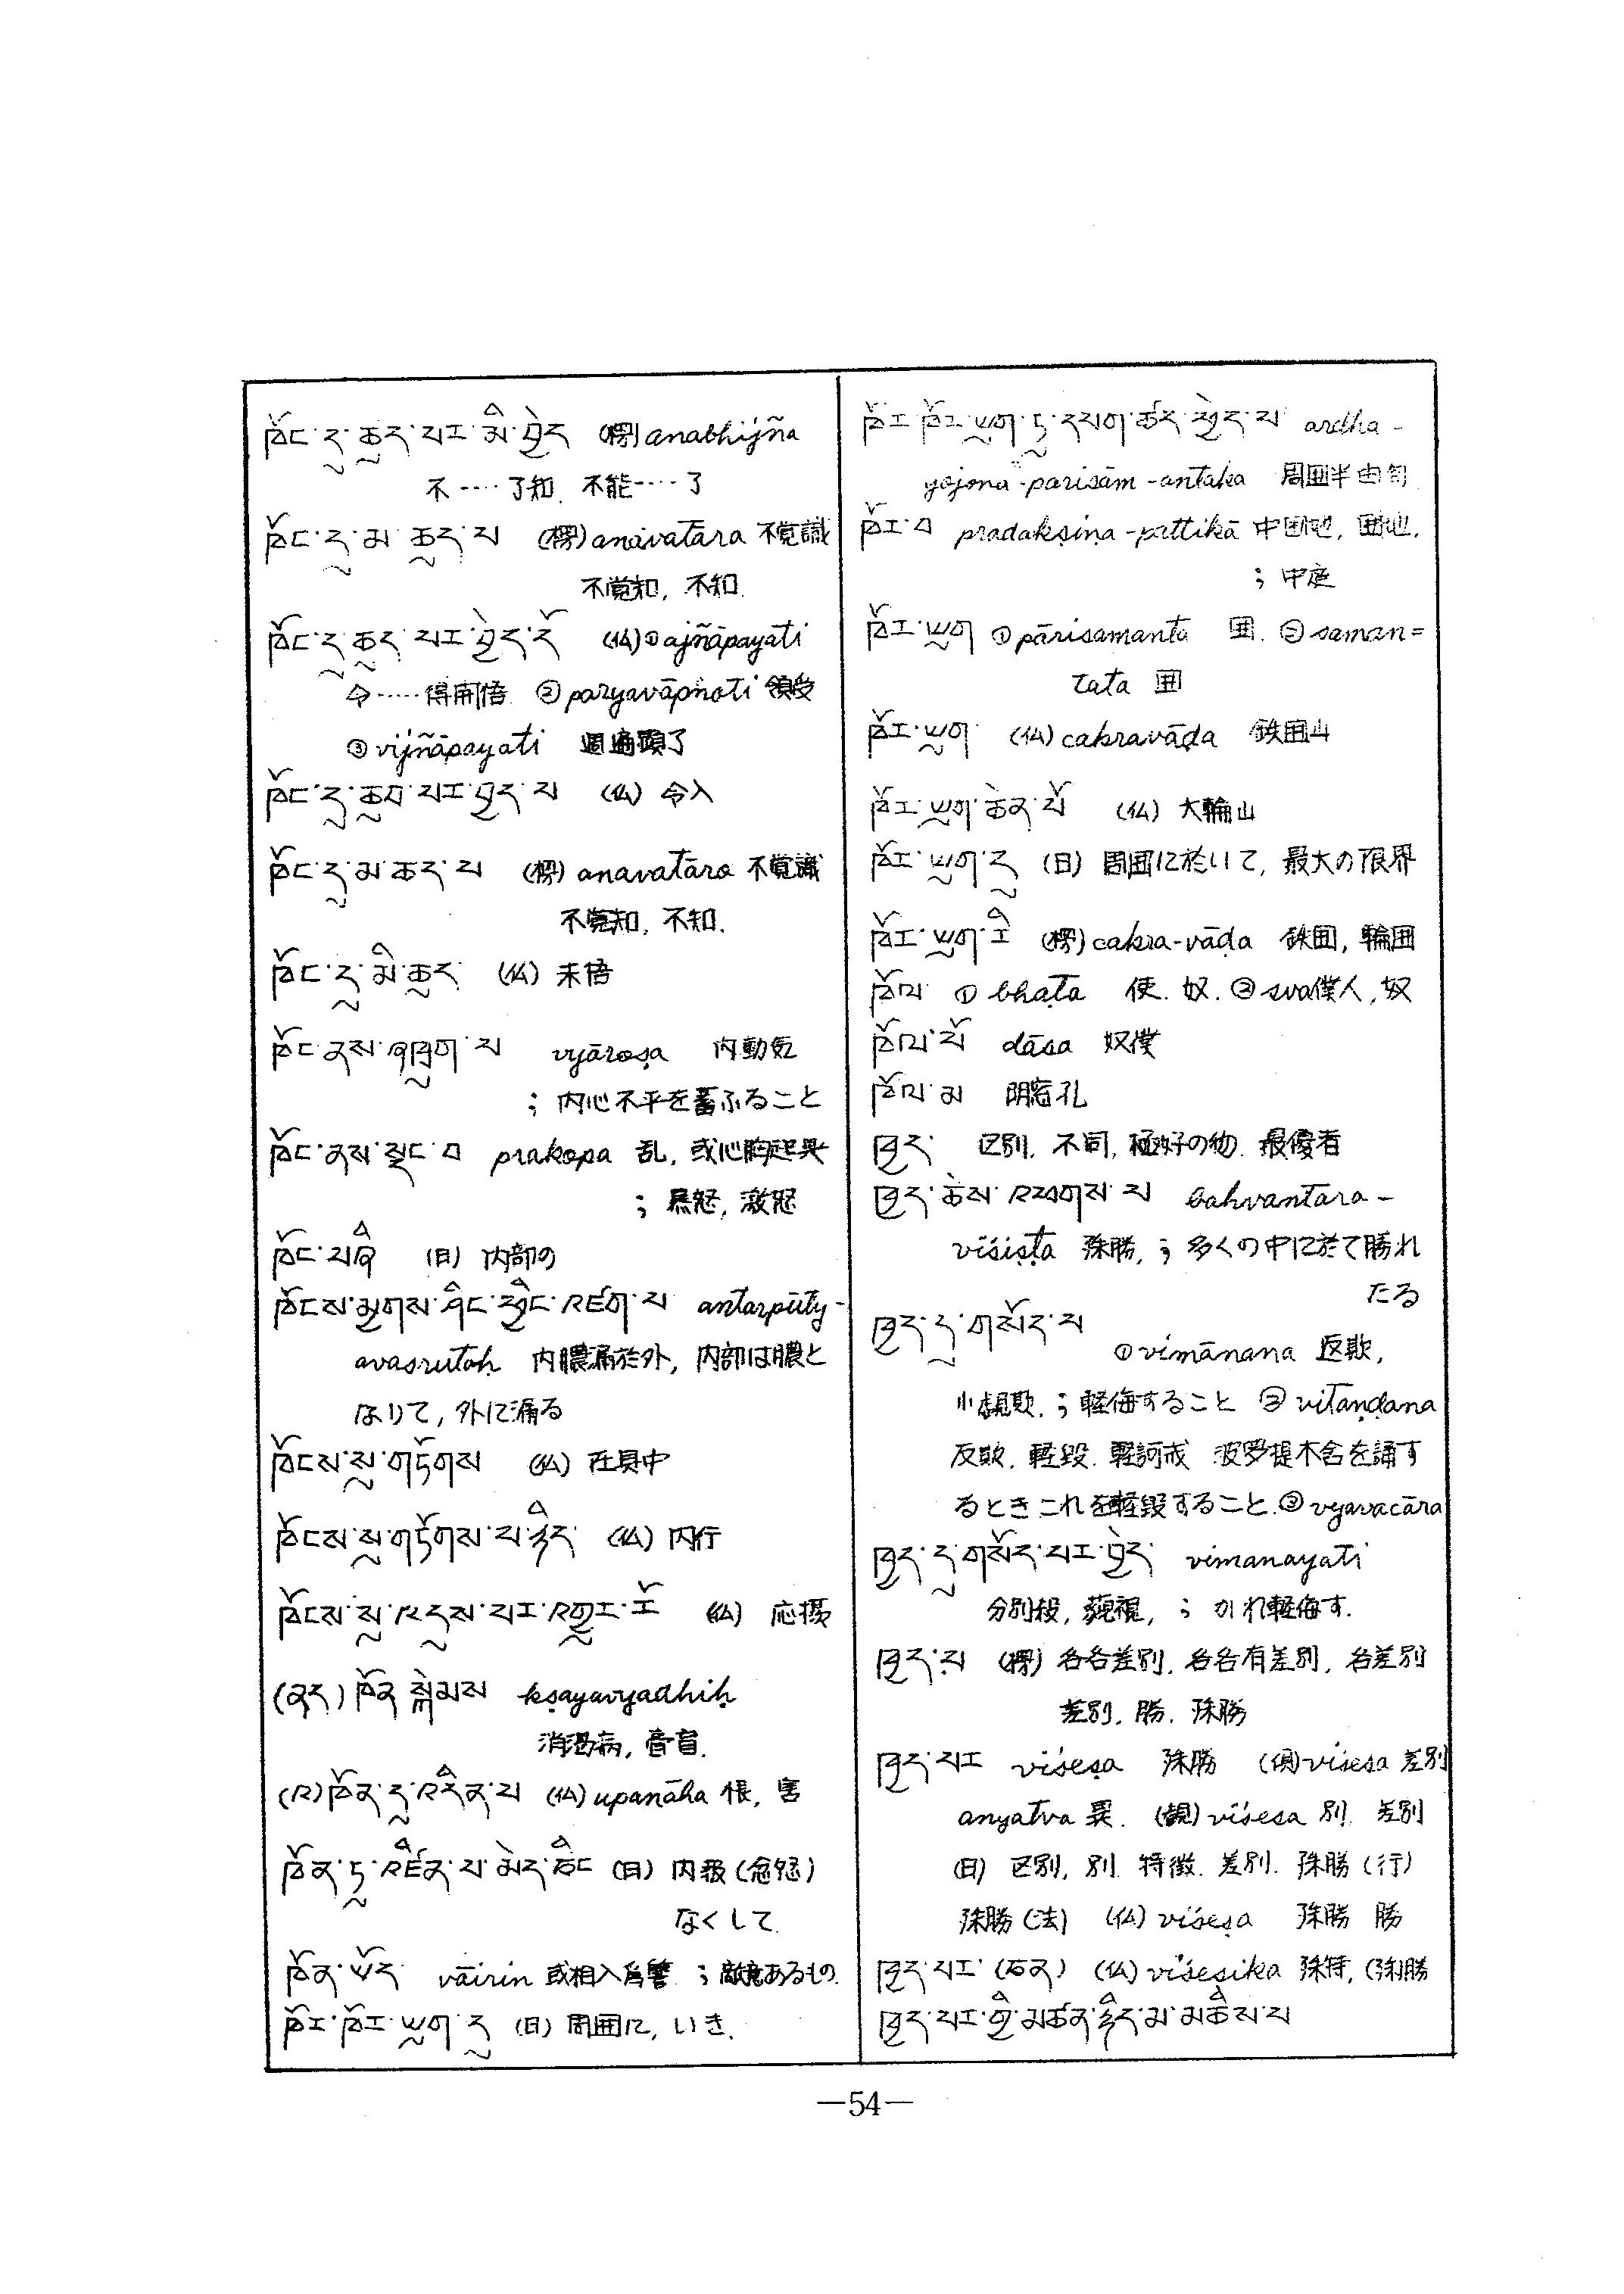 ཁོང་དུ་ཆུད་པར་མི་བྱེད (楞) anabhijña
不‥‥了知. 不能‥‥了
ཁོང་དུ་མ་ཆུད་པ (楞) anavatāra 不覚識
不覚知, 不知.
ཁོང་དུ་ཆུད་པར་བྱེད་དོ (仏) ① ajñāpayati
令‥‥‥得開悟 ② paryavāpnoti 領受
③ vijñāpayati 週遍顕了
ཁོང་དུ་ཆུབ་པར་བྱད་པ (仏) 令入
ཁོང་དུ་མ་ཆད་པ (楞) anavatāra 不覚識
不覚知, 不知.
ཁོང་དུ་མི་ཆུད (仏) 未悟
ཁོང་ནས་འཁྲུག་པ vyāroṣa 内動気
; 内心不平を蓄ふること
ཁོང་ནས་ལྡང་བ prakopa 乱, 或心胸起異
; 暴怒, 激怒
ཁོང་པའི (日) 内部の
ཁོངས་མྱགས་ཤིང་ཕྱིང་འཛག་པ antarpūty-
avasrutaḥ 内膿漏於外, 内部は膿と
なりて, 外に漏る
ཁོངས་སུ་གཏོགས (仏) 在其中
ཁོངས་སུ་གཏོགས་པ་ཉིད (仏) 内行
ཁོངས་སུ་འདུས་པར་འགྱུར་རོ (仏) 応摂
(ནད) ཁོན་སྐེམས kṣayavyadhiḥ
消渇病, 音盲.
(འ)ཁོན་དུ་འདིན་པ (仏) upanāha 恨, 害
ཁོན་ཏུ་འཛིན་པ་མེད་ཅིང (日) 内報 (忿怒)
なくして.
ཁོན་ཡོད vāirin 或相入為讐. ; 敵意あるもの.
ཁོར་ཁོར་ཡུག་དུ (日) 周囲に, いき.
ཁོར་ཁོར་ཡུག་ཏུ་དཔག་ཚད་ཕྱེད་པ ardha-
yojona-parisām-antaka 周囲半由旬
ཁོར་བ pradakṣiṇa-pattikā 中囲地, 囲地.
; 中庭
ཁོར་ཡུག ① pārisamanta 囲. ② saman=
tata 囲
ཁོར་ཡུག (仏) cakravāḍa 鉄囲山
ཁོར་ཡུག་ཆེན་པོ (仏) 大輪山
ཁོར་ཡུག་དུ (日) 周囲に於いて, 最大の限界
ཁོར་ཡུག་རི (楞) cakra-vāḍa 鉄囲, 輪囲
ཁོལ ① bhaṭa 使. 奴. ② sva僕人, 奴
ཁོལ་པོ dāsa 奴僕
ཁོལ་མ 陰窓孔
ཁྱད་ 区別. 不同, 極好の物. 最優者
ཁྱད་ཆེས་འཕགས་པ bahvantara-
viśiṣṭa 殊勝, ; 多くの中に於て勝れ
たる
ཁྱད་དུ་གསོད་པ
① vimānana 返欺,
小覷欺. ; 軽侮すること ② vitaṇḍana
反欺. 軽毀. 軽訶戒 波罗提木舎を誦す
るときこれを軽毀すること. ③ vyavacāra
ཁྱད་དུ་གསོད་པར་བྱེད vimanayati
分別殺, 藐視, ; かれ軽侮す.
ཁྱད་པ (楞) 各各差別, 各各有差別, 各差別
差別, 勝. 殊勝
ཁྱད་པར viśeṣa 殊勝 (倶) viśesa 差別
anyatva 異. (観) viśesa 別. 差別
(日) 区別, 別. 特徴. 差別. 殊勝 (行)
殊勝 (法) (仏) viśeṣa 殊勝 勝
ཁྱད་པར་(ཅན) (仏) viśeṣika 殊特, (殊)勝
ཁྱད་པར་གྱི་མཚན་ཉིད་མ་མཆིས་པ
—54—